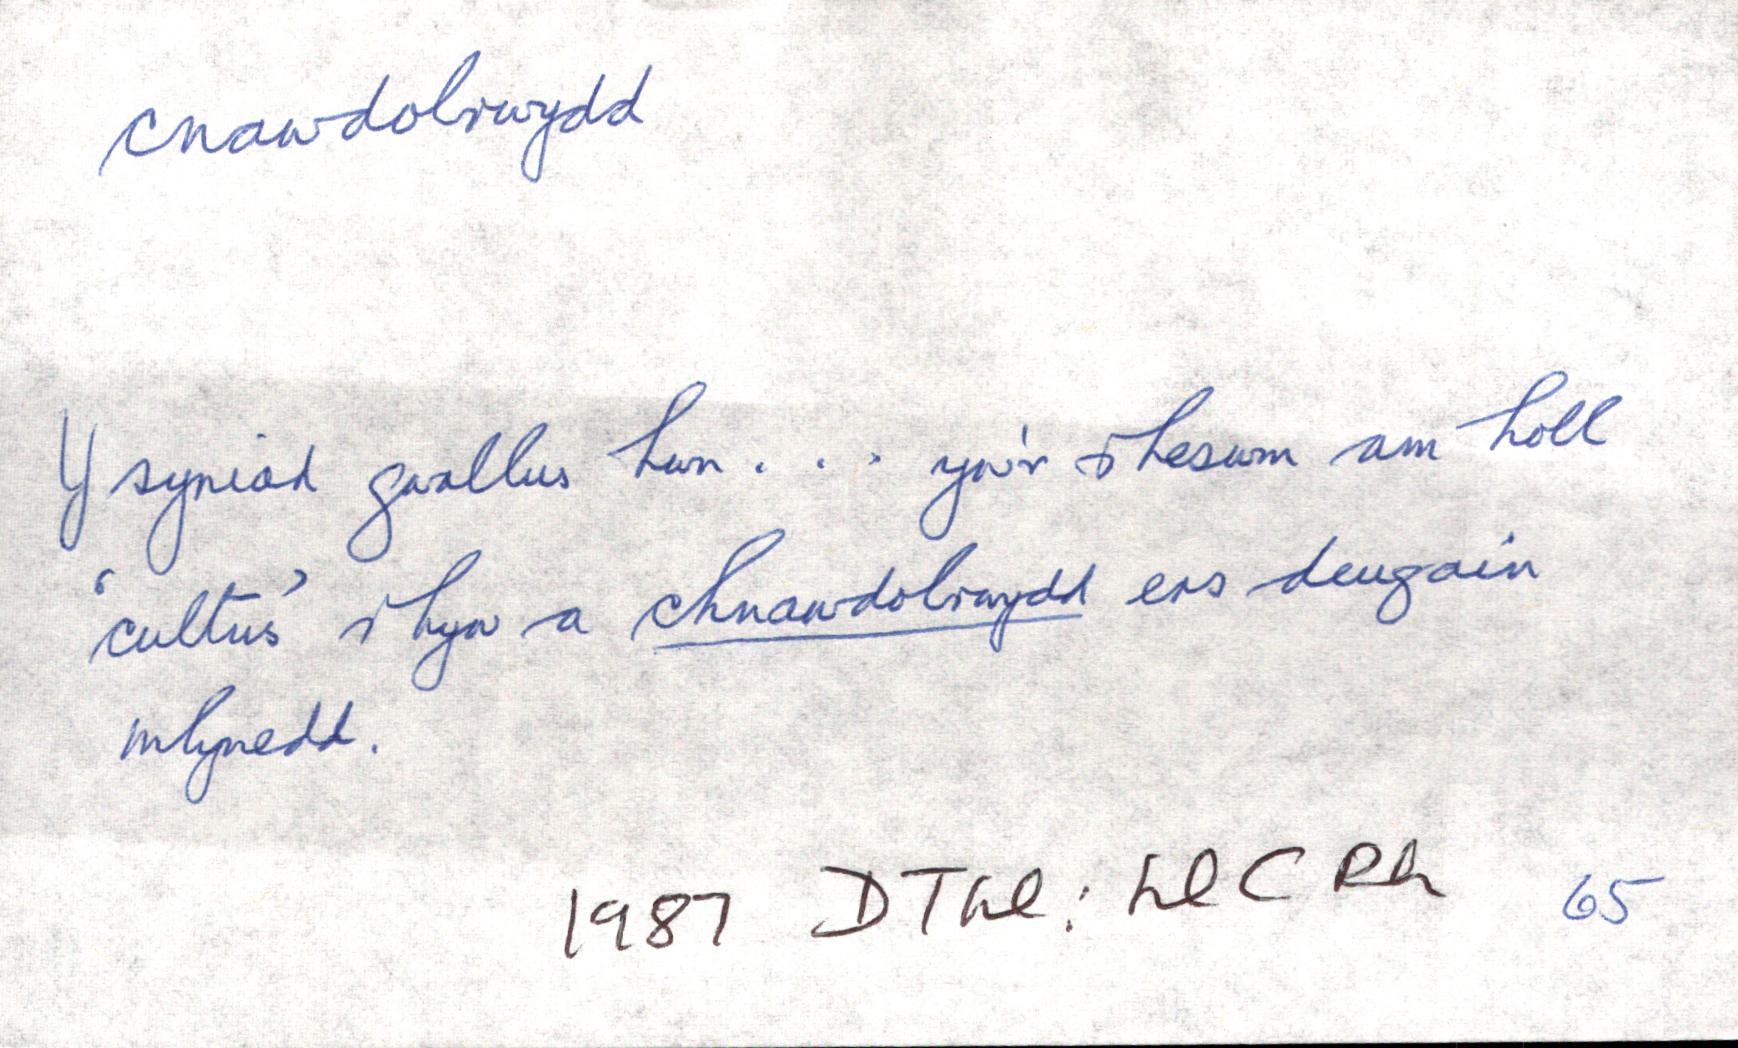 cnawdolrwydd
Y syniad gwallus hwn . . . yw'r rheswm am holl
'cultus' rhyw a chnawdolrwydd ers deugain
mlynedd.
1987 DTLl: LlCRh 65